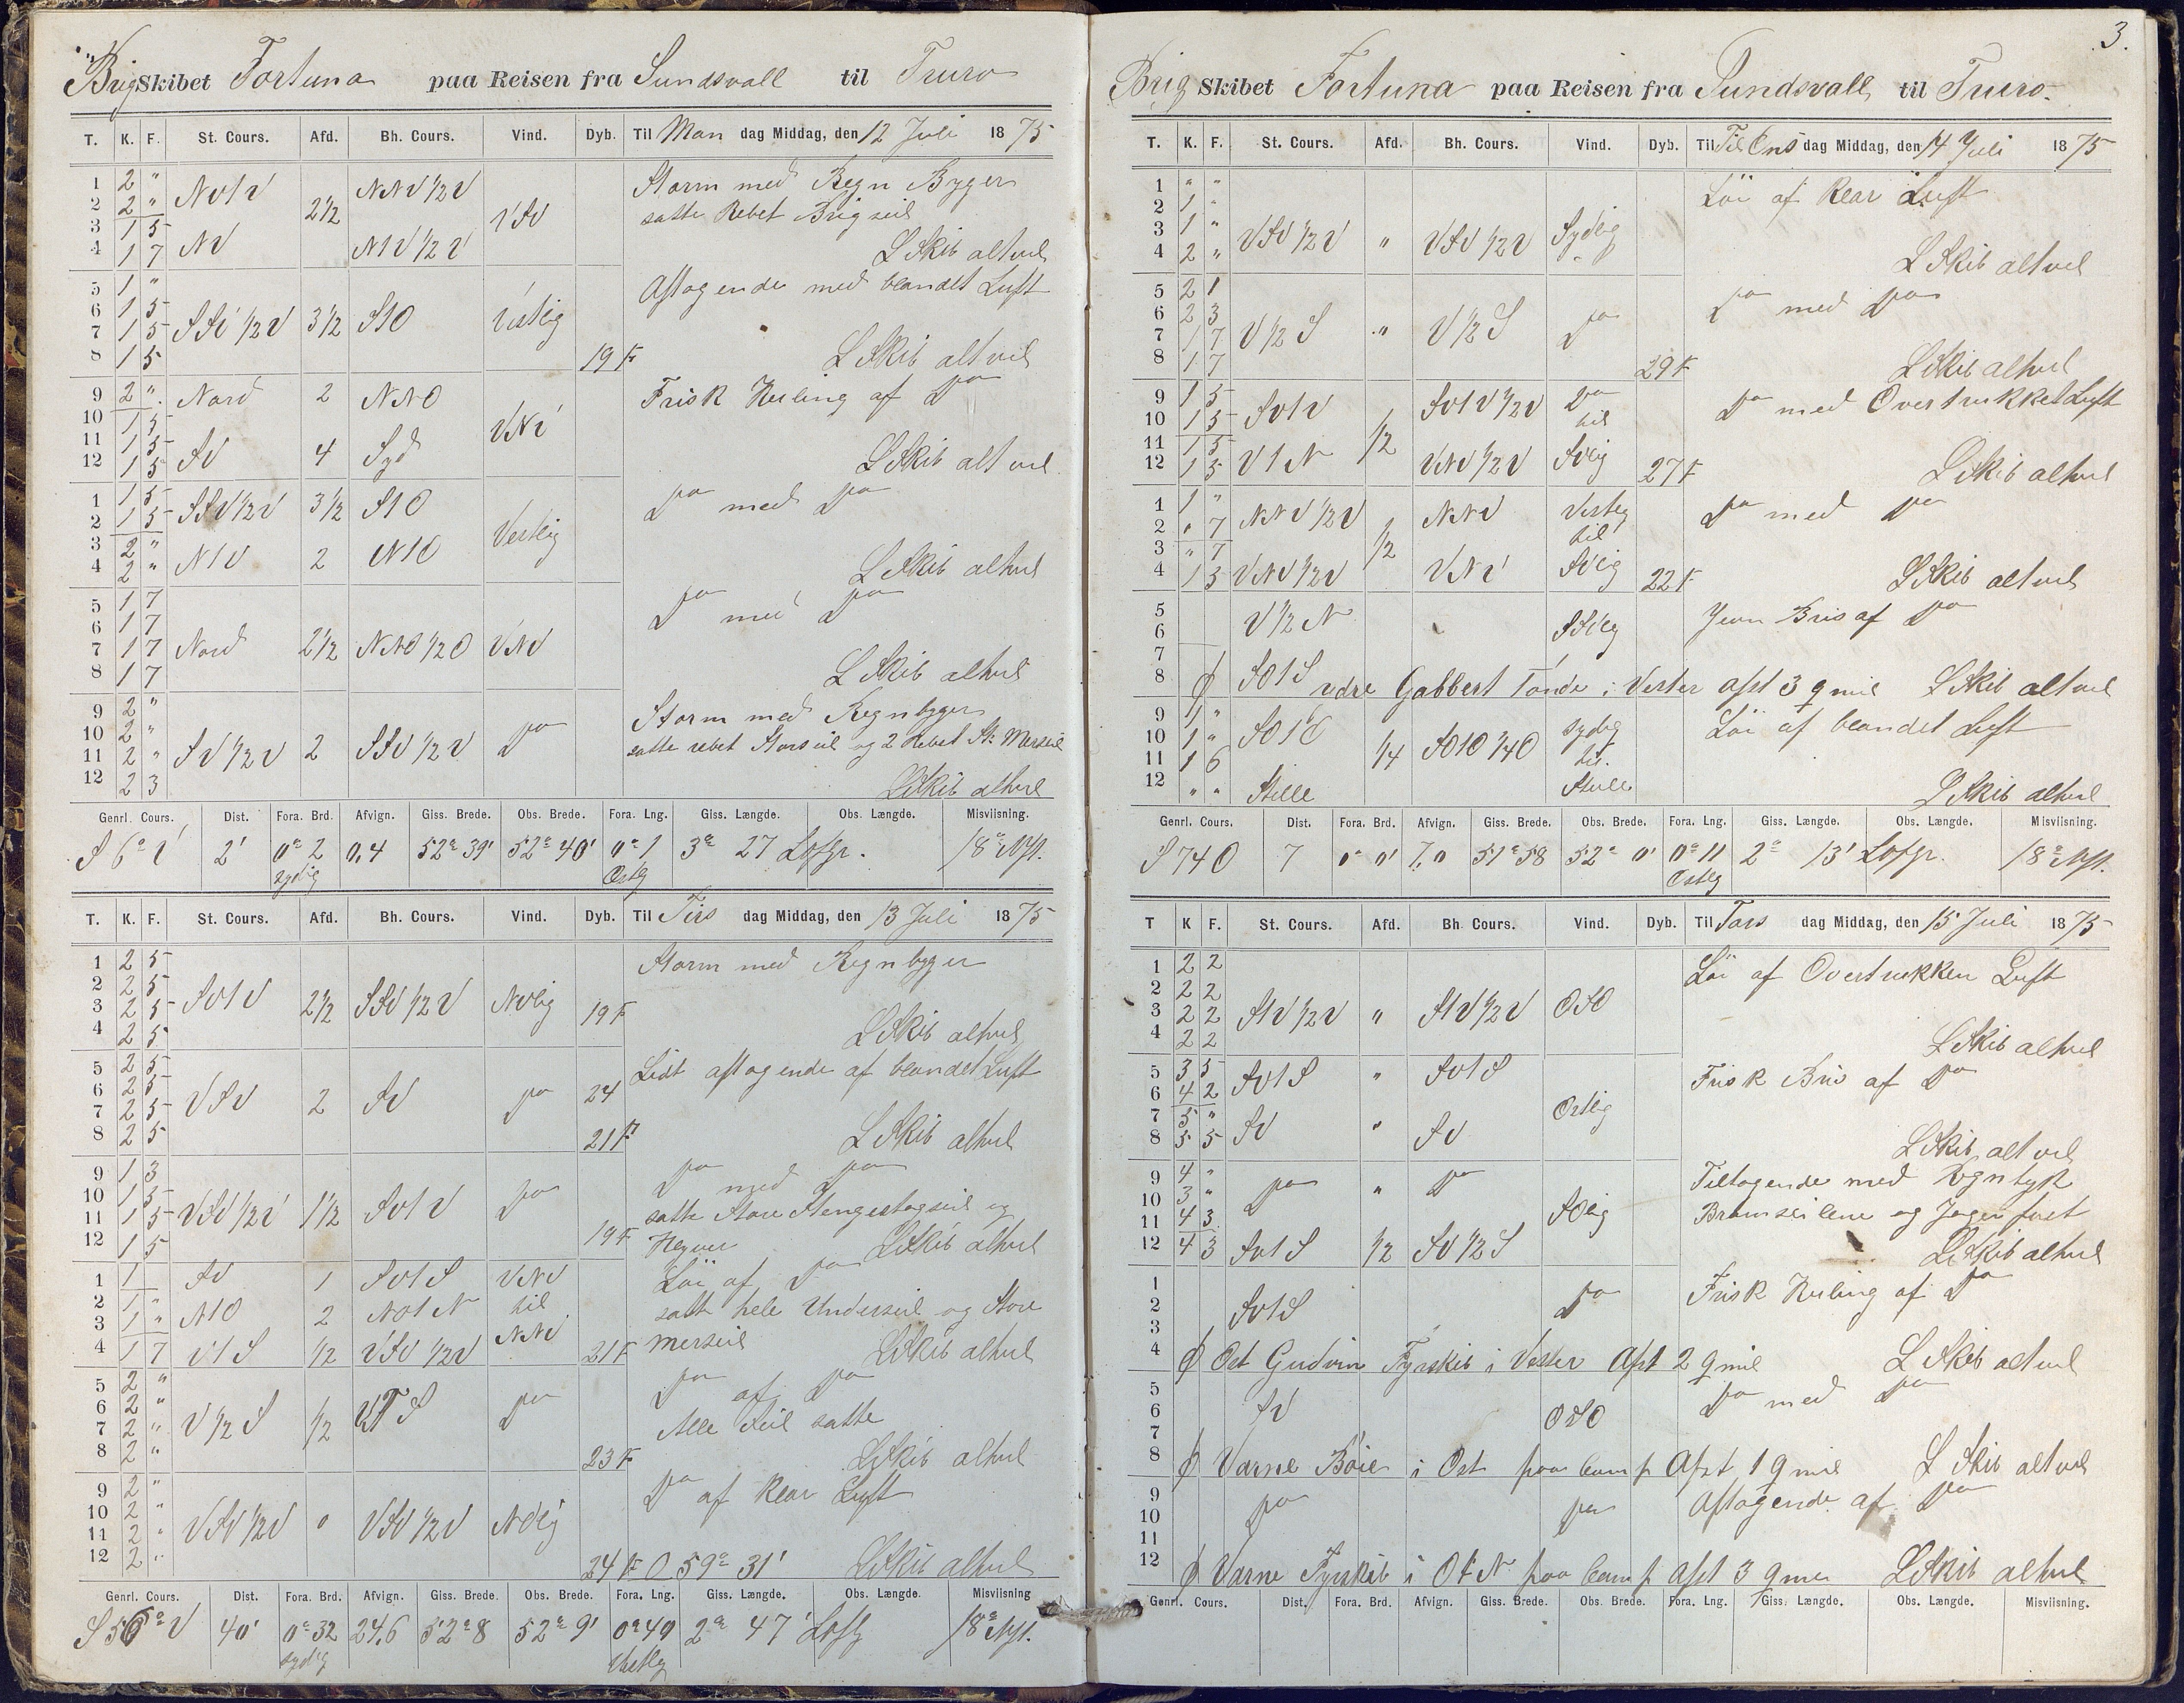 Brig Skibet Fortuna paa Reisen fra Sundsvall til Truro
T. K. F. St. Cours. Afd. Bh. Cours. Vind. Dyb. Til Man dag Middag, den 12 Juli 1875
1 2 " NV1V 2½ NNV½V VSV Storm med Regn Byger
2 2 " satte Rebet Brigseil
3 1 5 NV NV½V
4 1 7 L Skib alt vel
5 1 " SSV½V 3½ S1O Vestlig Aftagende med blandet Luft
6 1 5
7 1 5
8 1 5 19 F L Skib alt vel
9 2 " Nord 2 NNO VNV Frisk Kuling af Do
10 1 5
11 1 5 SV 4 Syd
12 1 5 L Skib alt vel
1 1 5 SSV½V 3½ S1O Vestlig Do med Do
2 1 5
3 2 " N1V 2 N1O
4 2 " L Skib altvel
5 1 7 Nord 2½ NNO½O VNV Do med Do
6 1 7
7 1 7
8 1 7 L Skib altvel
9 2 " SV½V 2 SSV½V Do Storm med Regnbyger
10 2 " satte rebet Storseil og 2 Rebet St: Merseil
11 2 "
12 2 3 L Skib altvel
Genrl. Cours. Dist. Fora. Brd. Afvign. Giss. Brede. Obs. Brede. Fora. Lng. Giss. Længde. Obs. Længde. Misviisning.
S 6° V 2' 0° 2 sydlig 0,4 52° 39' 52° 40' 0° 1 Østlig 3° 27 Lofgr. 18° NV.
T. K. F. St. Cours. Afd. Bh. Cours. Vind. Dyb. Til Tirs dag Middag, den 13 Juli 1875
1 2 5 SV1V 2½ SSV½V NVlig Storm med Regnbyger
2 2 5
3 2 5 19 F
4 2 5 L Skib altvel
5 2 5 VSV 2 SV Do Lidt aftagende af blandet Luft
6 2 5 24
7 2 5
8 2 5 21 F L Skib altvel
9 1 3 VSV½V 1½ SV1V Do Do med Do
10 1 5 satte Store Stengestagseil og
11 1 5
12 1 5 19 F L Skib altvel
1 1 SV 1 SV1S VNV Löi af Do
2 1 " N1O 2 NO1N til satte hele Underseil og Store
3 1 " NNV Merseil
4 1 7 V1S ½ VSV½V 21 F L Skib altvel
5 2 " V½S ½ V1S Do Do af Do
6 2 " Alle Seil satte
7 2 "
8 2 " 23 F L Skib altvel
9 2 " VSV½V " VSV½V NVlig Do af Klar Luft
10 2 "
11 2 "
12 2 " 24 F O 59° 31' L Skib altvel
Genrl. Cours. Dist. Fora. Brd. Afvign. Giss. Brede. Obs. Brede. Fora. Lng. Giss. Længde. Obs. Længde. Misviisning
40' 0° 32 sydlig 24,6 52° 8 52° 9' 0° 40 Vestlig 2° 47' 18° NV.
3.
Brig Skibet Fortuna paa Reisen fra Sundsvall til Truro.
T. K. F. St. Cours. Afd. Bh. Cours. Vind. Dyb. Til Ons dag Middag, den 14 Juli 1875
1 " " VSV½V " VSV½V Sydlig Löi af Klar Luft
2 1 "
3 1 "
4 2 " L Skib altvel
5 2 1 V½S " V½S Do Do med Do
6 2 3
7 1 7
8 1 7 29 F L Skib altvel
9 1 5 SV1V ½ SV1V½V Do til SVlig Do med Overtrukket Luft
10 1 5
11 1 5 V1N VNV½V
12 1 5 27 F L Skib altvel
1 1 " NNV½V ½ NNV Vestlig til SVlig Do med Do
2 " 7
3 " 7 VNV½V VNV
4 1 3 22 F L Skib altvel
5 V½N SSVlig Jevn Bris af Do
6
7
8 SO1S ydre Gabbert Tönde i Vester afst 3 q mil L Skib altvel
9 1 " SO1O ¼ SO1O¼O sydlig til Stille Löi af blandet Luft
10 1 "
11 1 6
12 " " Stille L Skib altvel
Genrl. Cours. Dist. Fora. Brd. Afvign. Giss. Brede. Obs. Brede. Fora. Lng. Giss. Længde. Obs. Længde. Misviisning
S 74 O 7 0° 0' 7,0 51° 58 52° 0' 0° 11 Østlig 2° 13' Lofgr. 18° NV.
T K F. St. Cours. Afd. Bh. Cours. Vind. Dyb. Til Tors dag Middag, den 15 Juli 1875
1 2 2 S1V½V " S1V½V OSO Löi af Overtrukken Luft
2 2 2
3 2 2
4 2 2 L Skib altvel
5 3 5 SV1S " SV1S Ostlig Frisk Bris af Do
6 4 2
7 5 " SV " SV
8 5 5 L Skib altvel
9 4 " Do " Do SOlig Tiltagende med Regntyk
10 3 " Bramseilene og Jager fast
11 4 3
12 4 3 SV1S ½ SV½S L Skib altvel
1 SV1S Do Frisk Kuling af Do
2
3
4 Ost Gudvin Fyrskib i Vester Afst 2 q mil L Skib altvel
5 SV OSO Do med Do
6
7
8 Varne Böie i Ost paa Comp Afst 1 q mil L Skib altvel
9 Do Do Aftagende af Do
10
11
12 Varne Fyrskib i OtN paa Comp afst 3 q mil L Skib altvel
Genrl. Cours. Dist. Fora. Brd. Afvign. Giss. Brede. Obs. Brede. Fora. Lng. Giss. Længde. Obs. Længde. Misviisning.